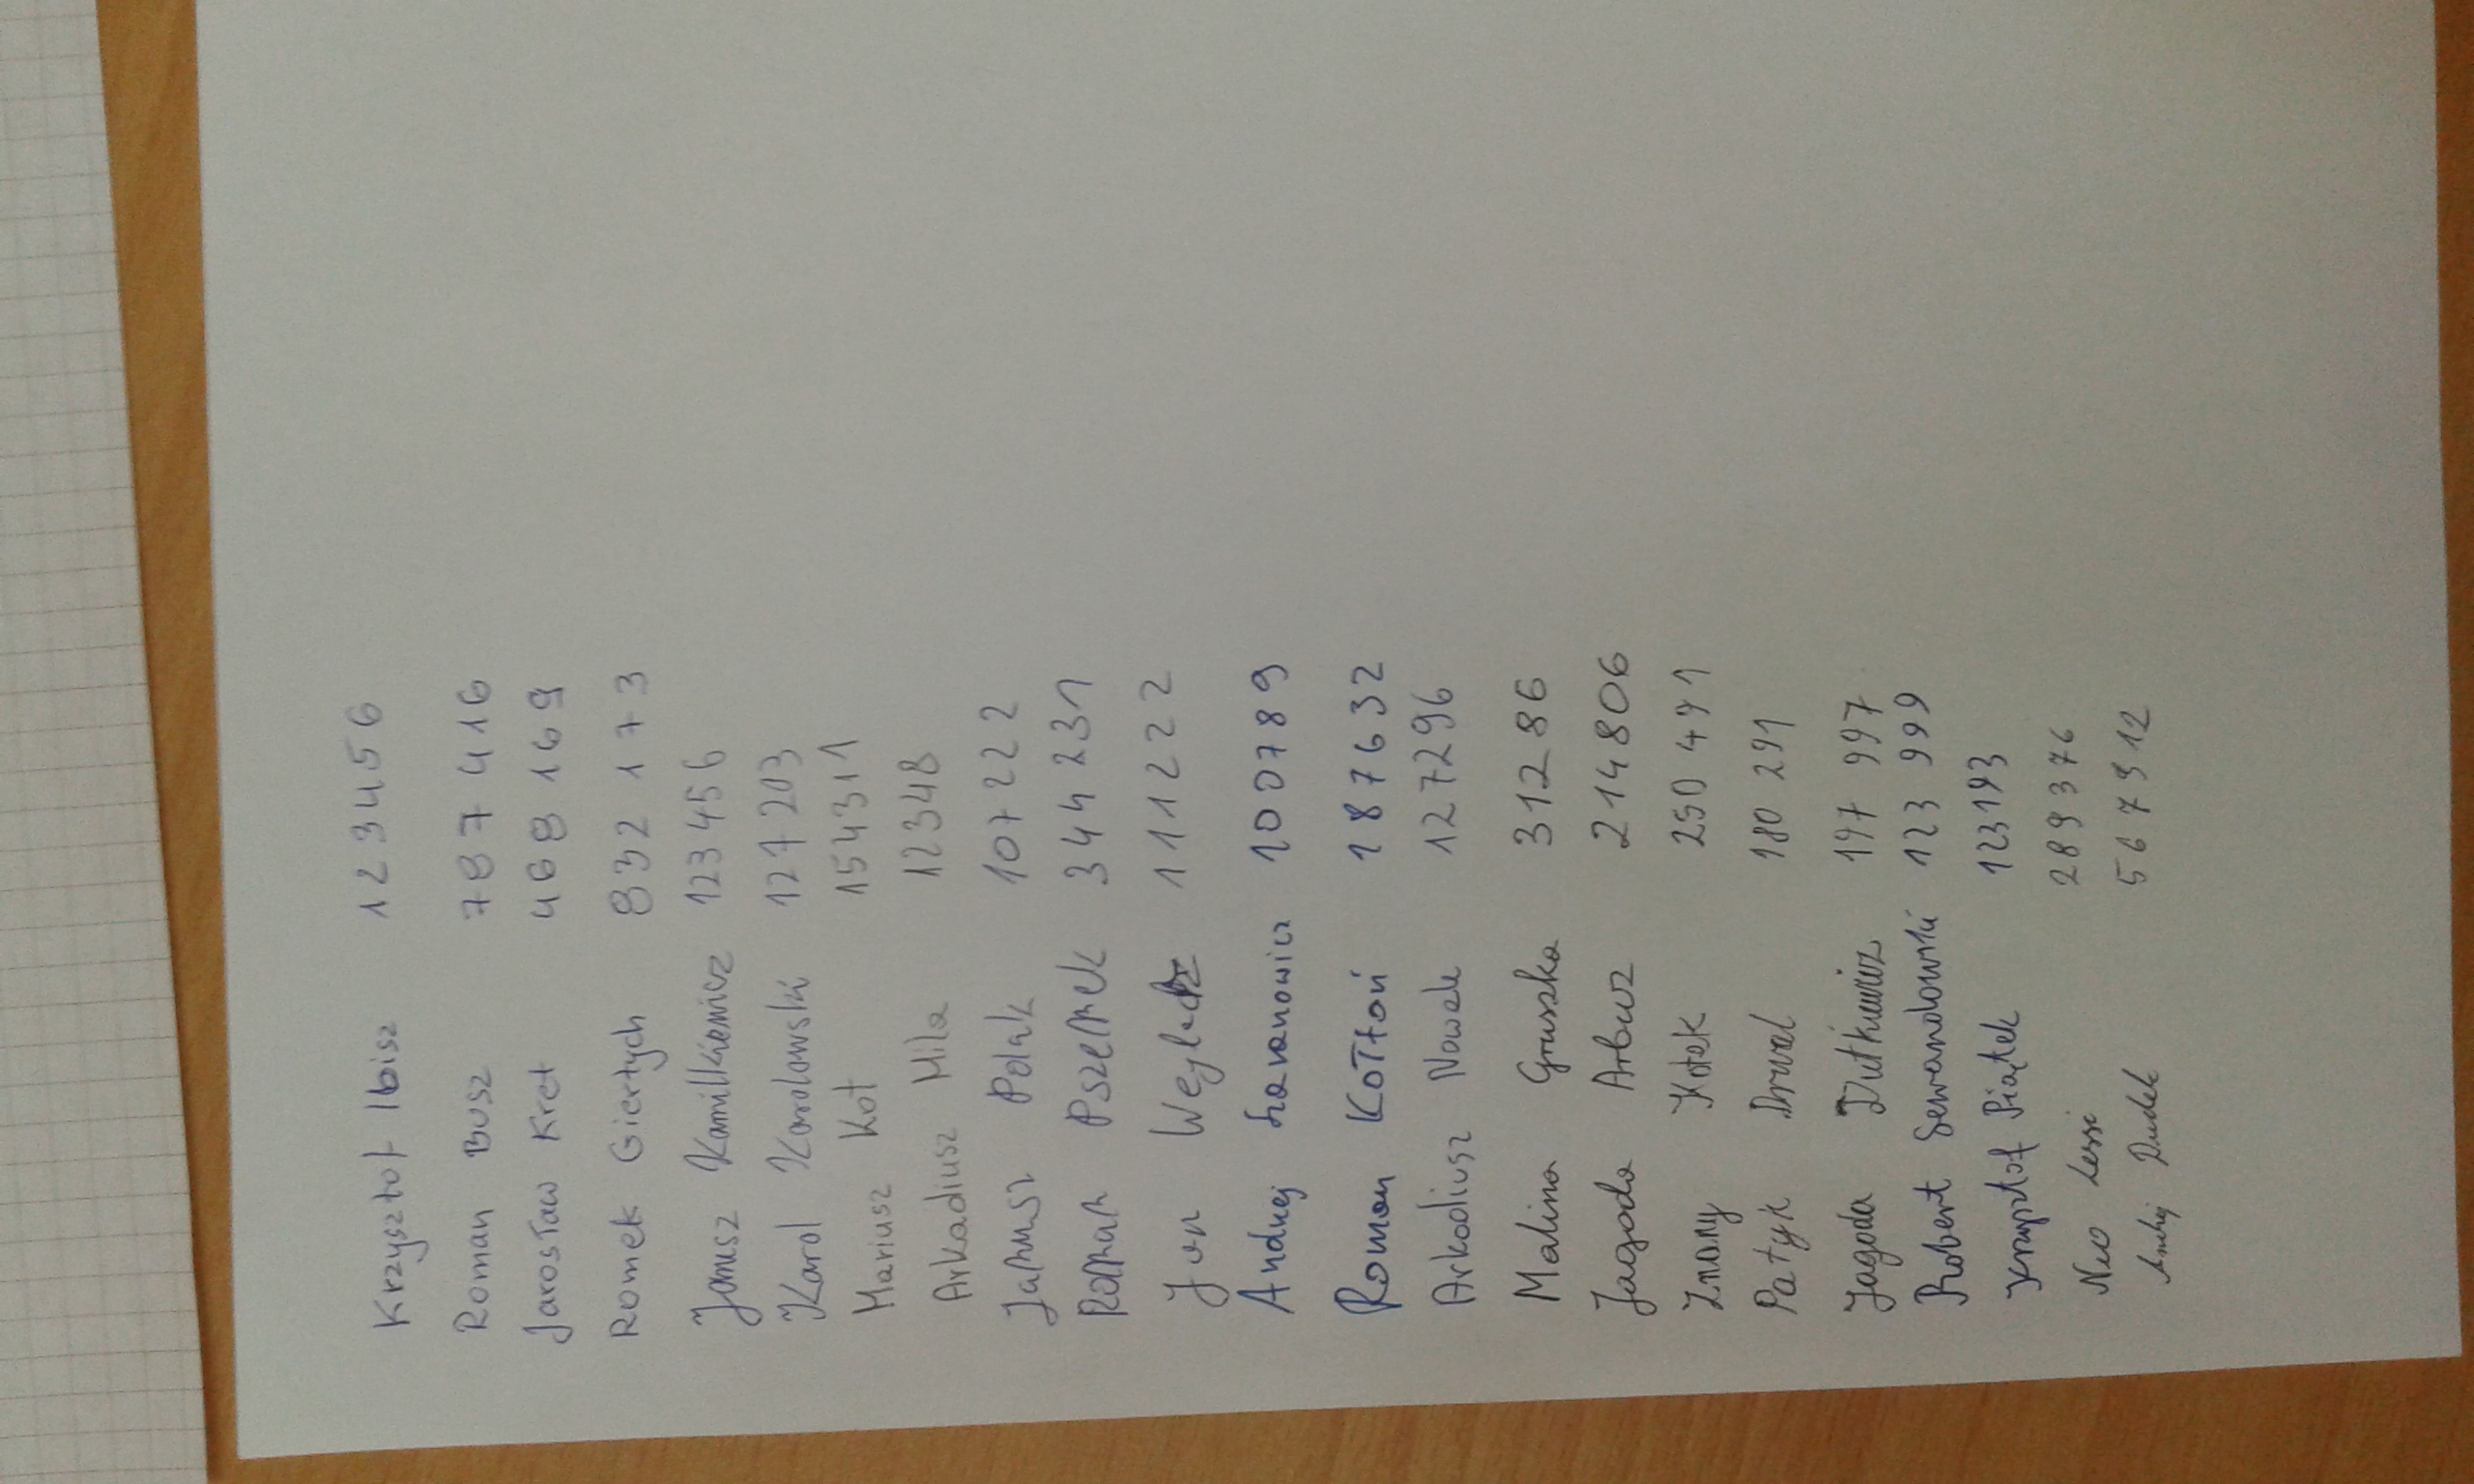 Krzysztof Ibisz 123456
Roman Busz 787416
Jarosław Kret 468169
Romek Giertych 832173
Janusz Kamilkiewicz 123456
Karol Karolowski 127203
Mariusz Kot 154311
Arkadiusz Mila 12348
Janusz Polak 107222
Roman Pszemek 344231
Jan Weglarz 111222
Andrzej Szaranowicz 100789
Roman Kołtoń 187632
Arkadiusz Nowak 127296
Malina Gruszka 31286
Jagoda Arbuz 214806
Znany Kotek 250491
Patyk Drwal 180291
Jagoda Dutkiewicz 197997
Robert Sewandowski 123999
Krzysztof Piątek 123193
Neo Lessi 289376
Andrzej Dudek 567912